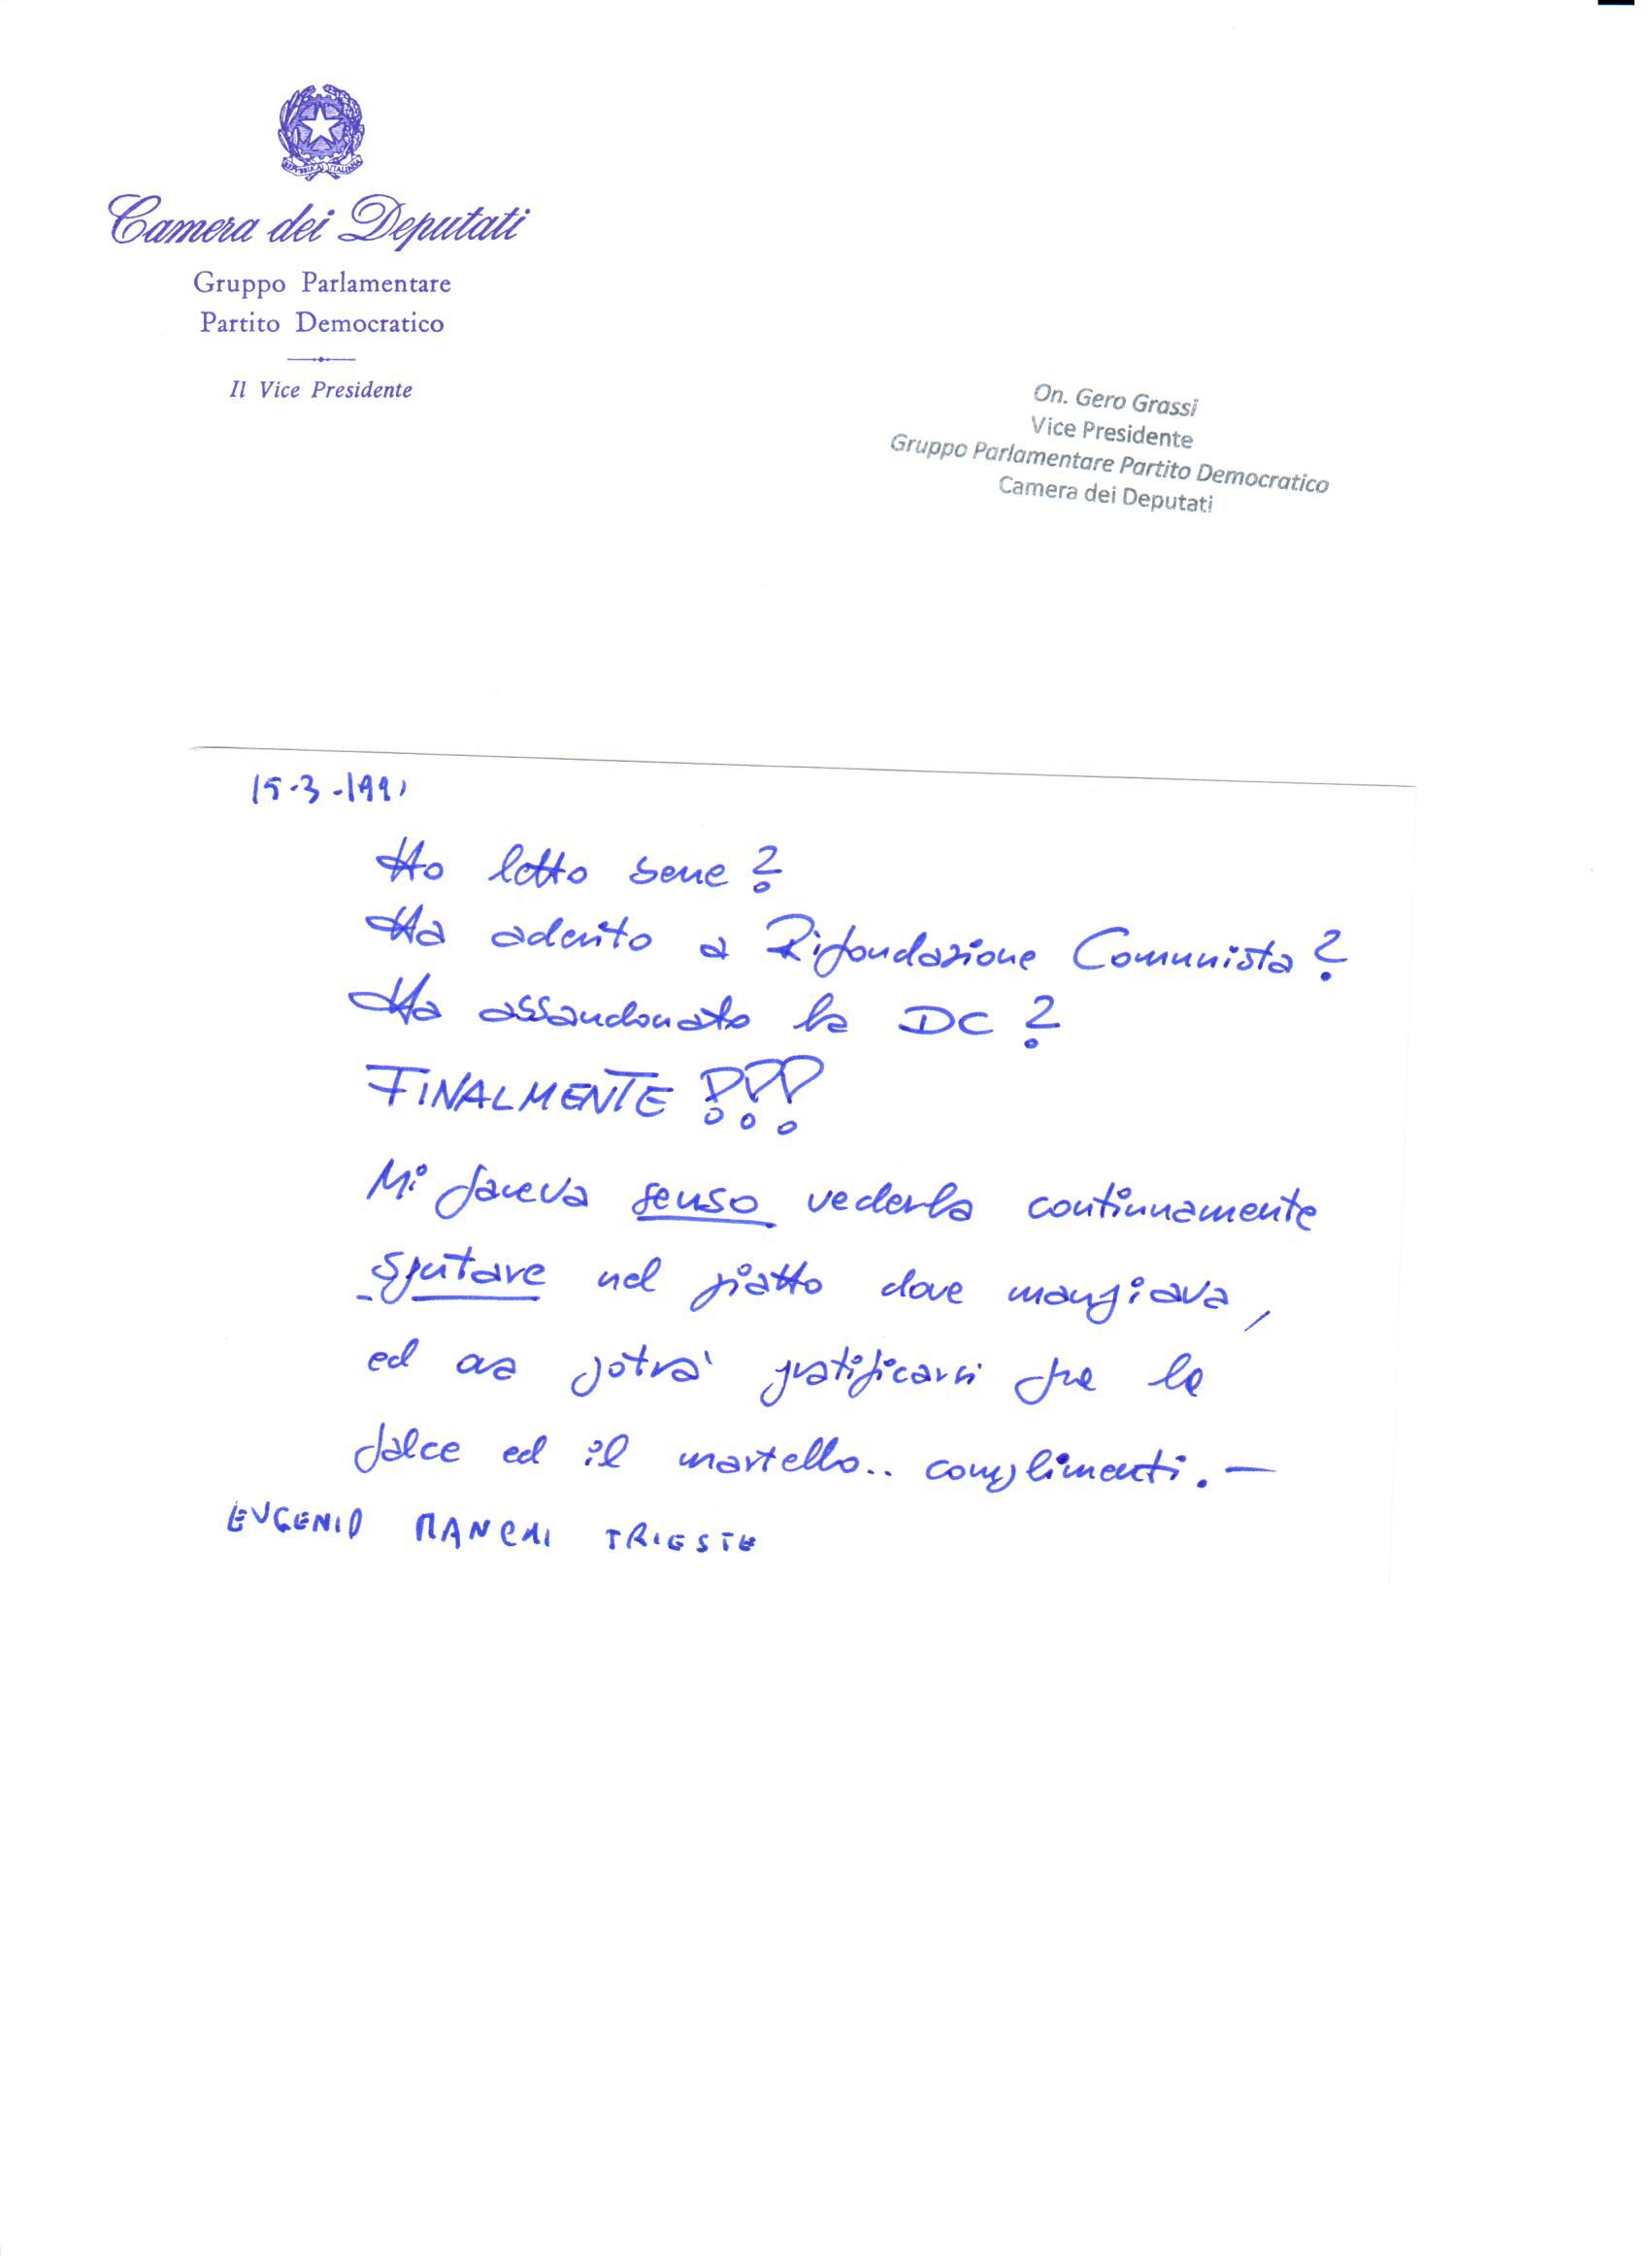 REPVBBLICA ITALIANA
Camera dei Deputati
Gruppo Parlamentare
Partito Democratico
Il Vice Presidente
On. Gero Grassi
Vice Presidente
Gruppo Parlamentare Partito Democratico
Camera dei Deputati
15-3-1991
Ho letto bene?
Ha aderito a Rifondazione Comunista?
Ha abbandonato la DC?
FINALMENTE!!!
Mi faceva senso vederla continuamente
sputare nel piatto dove mangiava,
ed ora potrà gratificarsi fra la
falce ed il martello.. complimenti.—
EUGENIO TRIESTE